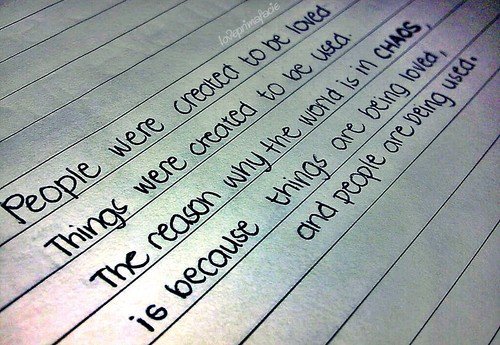 People were created to be loved
Things were created to be used.
The reason why the world is in CHAOS,
is because things are being loved,
and people are being used.